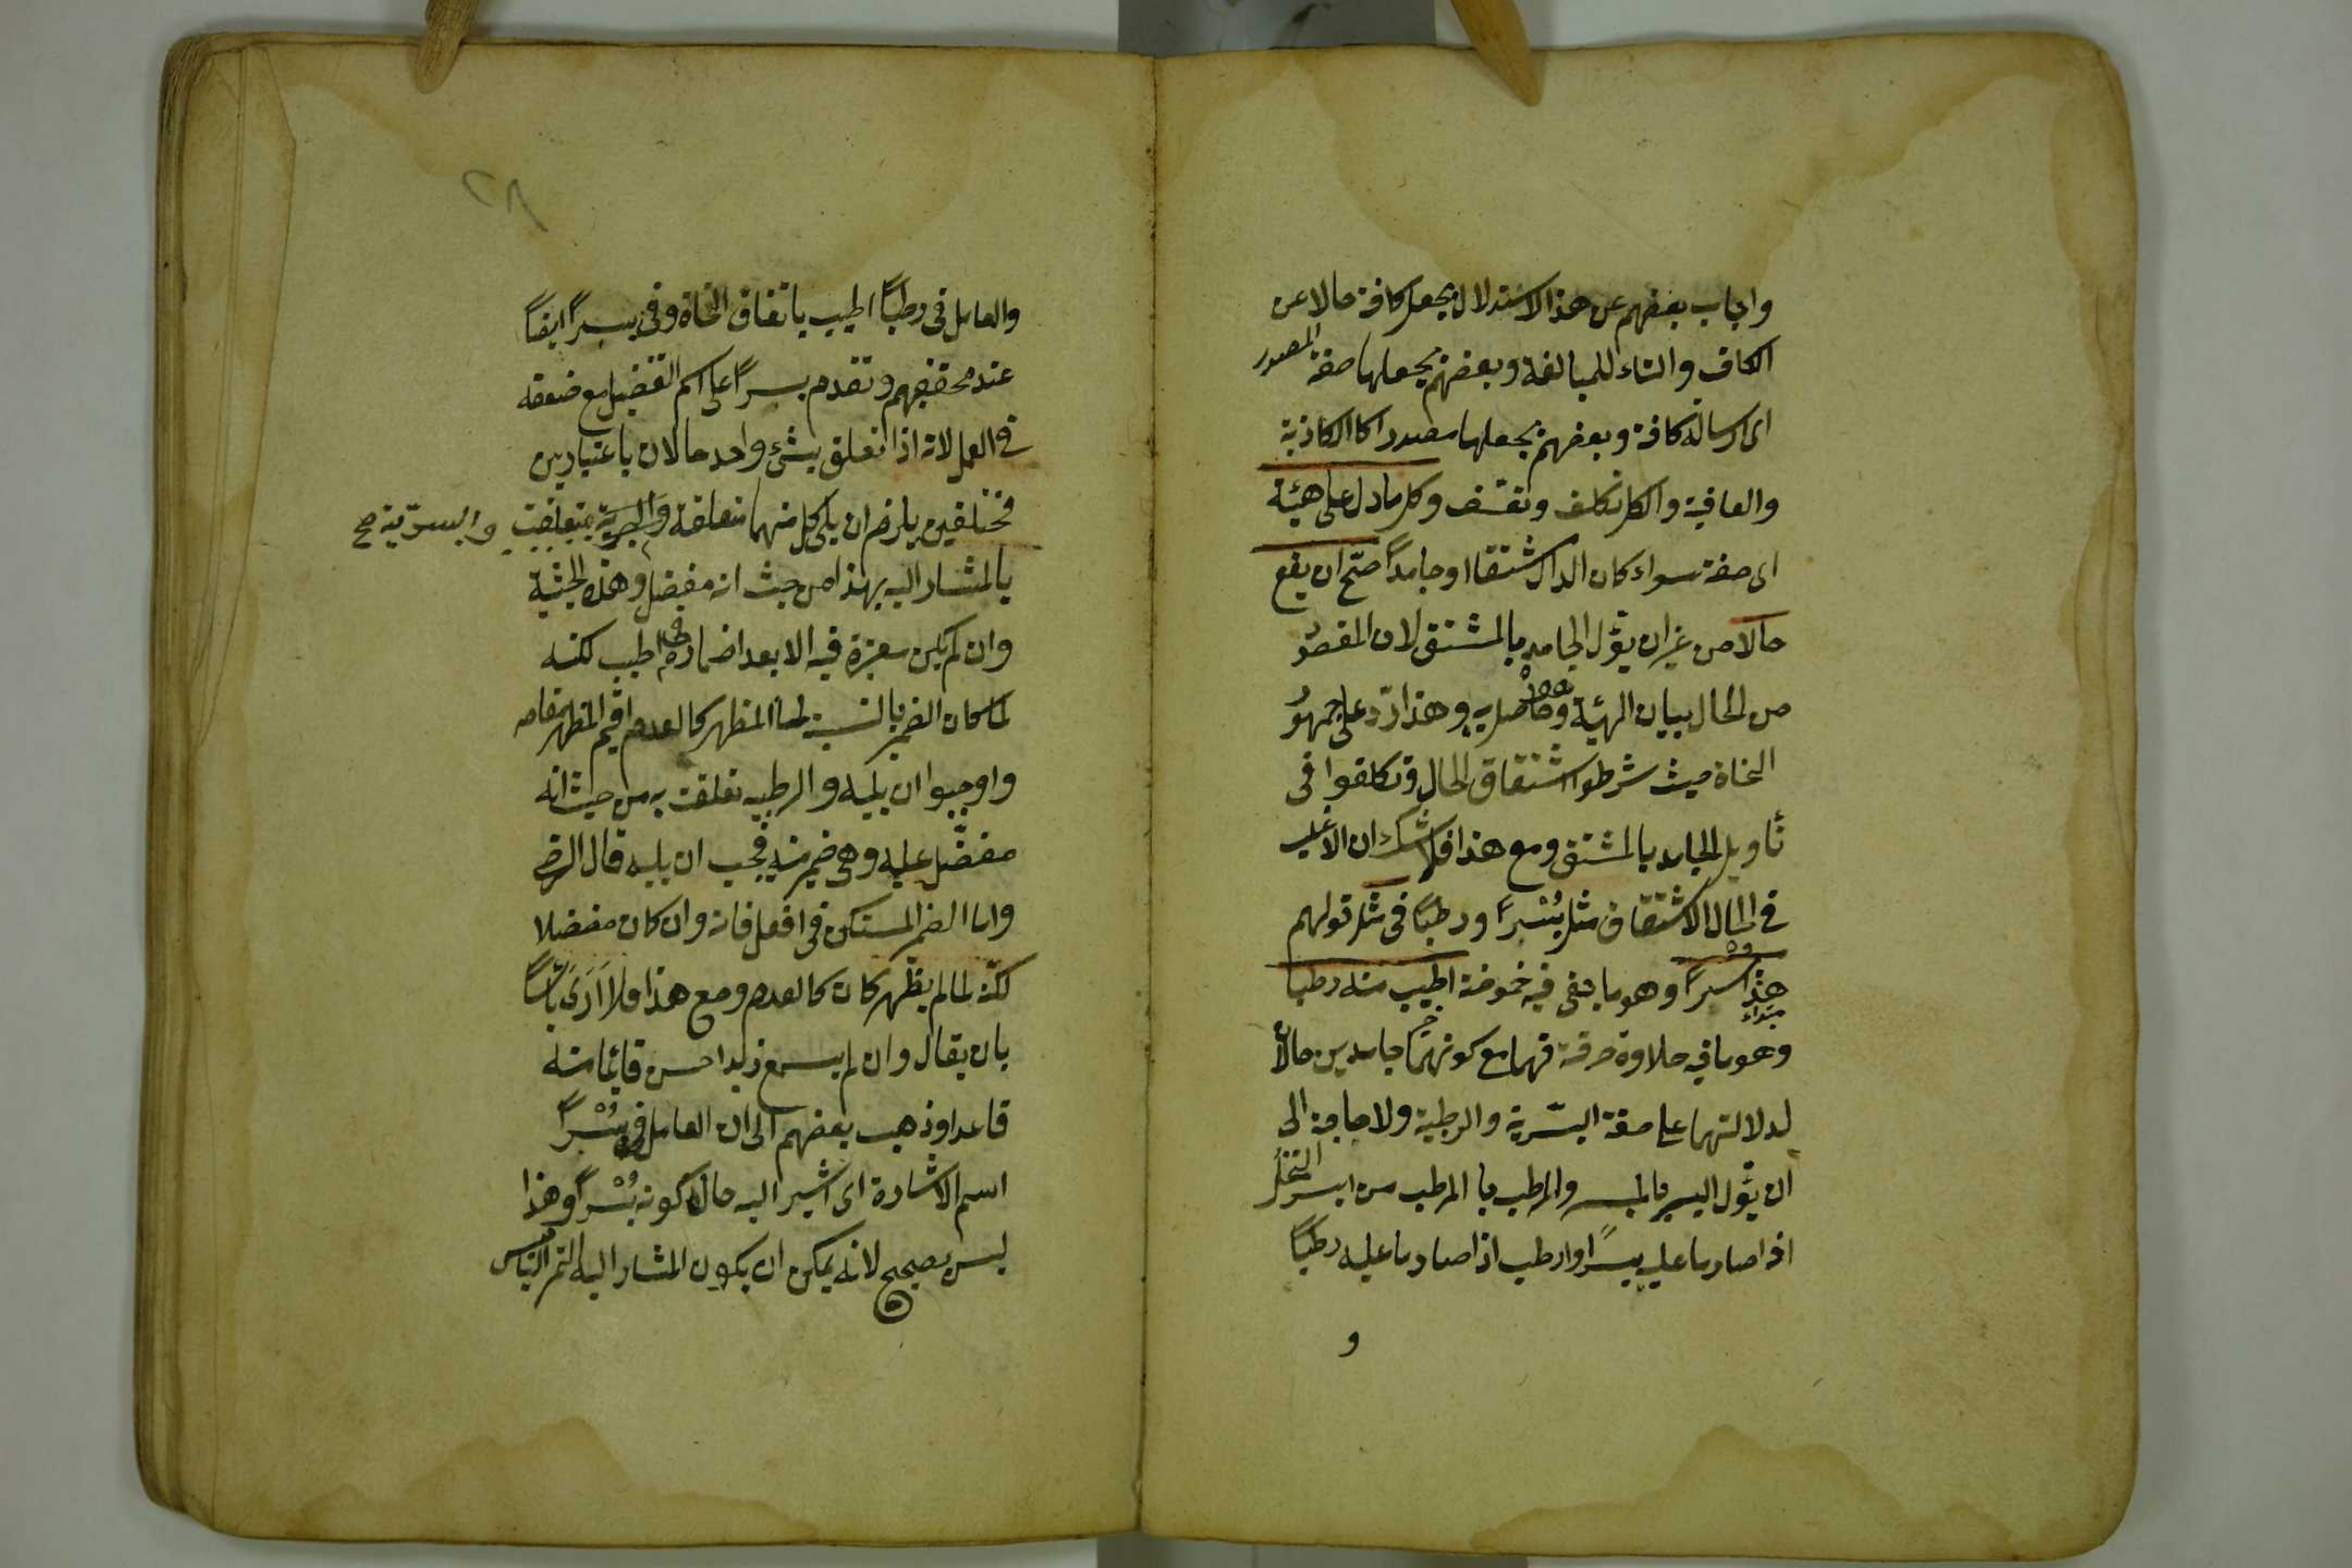 واجاب بعضهم عن هذا الاستدلال بجعل كافة حالا عن
الكاف والتاء للمبالغة وبعضهم يجعلها صفة المصدر
اى ارسالة كافة وبعضهم يجعلها مصدرا كالكاذبة
والعافية والكل تكلف وتعسف وكل ما دل على هيئة
اى صفة سواء كان الدال مشتقا او جامداً صحّ ان يقع
حالا من غير ان يؤل الجامد بالمشتق لان المقصود
من الحال بيان الهيئة وهو حاصل به وهذا ردّ على جمهور
النحاة حيث شرطوا اشتقاق الحال وتكلفوا فى
تأويل الجامد بالمشتق ومع هذا فلا شك ان الاغلب
فى الحال الاشتقاق مثل بُسْراً ورطباً فى مثل قولهم
هذا بسراً وهو ما بقى فيه حموضة اطيب منه رطبا
مبتداء
وهو ما فيه حلاوة صرفة فهما مع كونهما جامدين حالان
لدلالتهما على صفة البسّرية والرطبية ولا حاجة الى
ان يؤل البسر بالمبسر والرطب بالمرطب من ابسر النخل
اذا صار ما عليه بسراً وارطب اذا صار ما عليه رطباً
و
٢٨
والعامل فى رطباً اطيب باتفاق النحاة وفى بسراً ايضاً
عند محققيهم وتقدم بسراً على اسم التفضيل مع ضعفه
فى العمل لانه اذا تعلق بشئ واحد حالان باعتبارين
مختلفين يلزم ان يلى كل منهما متعلقه والبسرية تعلقت والبسريّة صح
بالمشار اليه بهذا من حيث انه مفضل وهذه الحيثية
وان لم يكن معتبرة فيه الا بعد اضماره فى اطيب لكنه
لما كان الضمير بالنسبة الى المظهر كالعدم اقيم المظهر مقامه
واوجبوا ان يليه والرطبية تعلقت به من حيث انه
مفضّل عليه وهى ضمير منه فيجب ان يليه قال الرضى
واما الضمير المستكن فى افعل فانه وان كان مفضلا
لكنّه لما لم يظهر كان كالعدم ومع هذا فلا اَرَى بأساً
بان يقال وان لم يسمع زيد احسن قائما منه
قاعدا وذهب بعضهم الى ان العامل فى بُسْراً
اسم الاشارة اى اشير اليه حال كونه بُسْراً وهذا
ليس بصحيح لانه يمكن ان يكون المشار اليه التمر اليابس